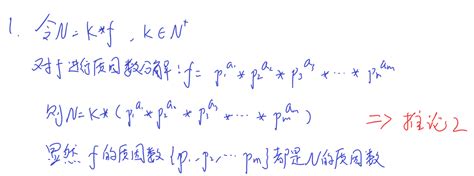 1. 令N=K*f , K∈N⁺
对f进行质因数分解:f= p₁^a₁ * p₂^a₂ * p₃^a₃ * … * pₘ^aₘ
则N=K*(p₁^a₁ * p₂^a₂ * p₃^a₃ * … * pₘ^aₘ) ⇒ 推论2
显然 f的质因数{p₁,p₂,…pₘ}都是N的质因数